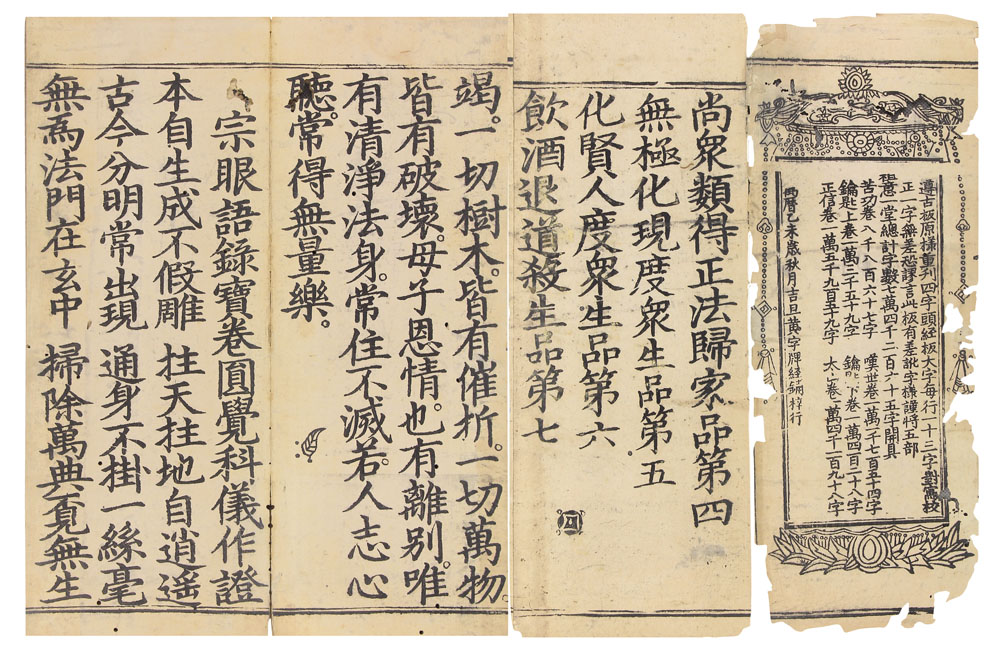 遵古板原樣重刊四字頭経板大字每行一十三字對寫校
正一字無差況課言此板有差訛字樣謹特五部
經意一堂總計字數七萬四千二百六十五字開具
苦功卷八千八百六十七字 嘆世卷一萬二千七百五十四字
鑰匙上卷一萬三千五十九字 鑰匙下卷一萬四百二十八字
正信卷一萬五千九百五十九字 太山卷一萬四千一百九十八字
丙曆乙未歲秋月吉旦黄字牌経鋪梓行
尚眾類得正法歸家品第四
無極化現度衆生品第五
化賢人度衆生品第六
飲酒退道殺生品第七
竭。一切樹木。皆有催折。一切萬物。
皆有破壞。母子恩情。也有離别。唯
有清淨法身。常住不滅。若人志心
聽。常得無量樂。
宗眼語錄寶卷圓覺科儀作證
本自生成不假雕 拄天拄地自逍遥
古今分明常出現 通身不掛一絲毫
無為法門在玄中 掃除萬典覔無生